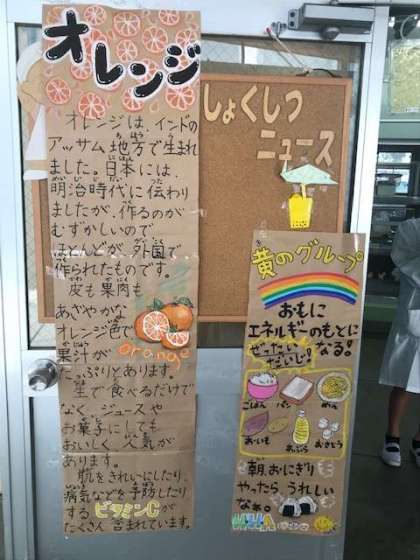 オレンジ
オレンジは、インドの
アッサム地方で生まれ
ました。日本には、
明治時代に伝わり
ましたが、作るのが
むずかしいので
ほとんどが、外国で
作られたものです。
皮も果肉も
あざやかな
オレンジ色で
果汁が
たっぷりとあります。
生で食べるだけで
なく、ジュースや
お菓子にしても
おいしく、人気が
あります。
肌をきれいにしたり、
病気などを予防したり
する ビタミンCが
たくさん含まれています。
orange
しょくしつ
ニュース
黄のグループ
おもに
エネルギーのもとに
なる!
ぜったい
ないじ!
ごはん パン めん
おいも あぶら おさとう
朝、おにぎり
やったら うれしい
なぁ。